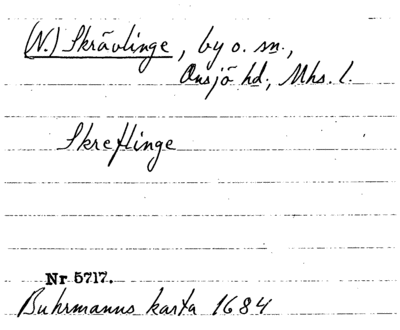 (N.) Skrävlinge, by o. sn.,
Oxie hd; Mhs. l.
Skreflinge
Nr 5717.
Buhrmanns karta 1684